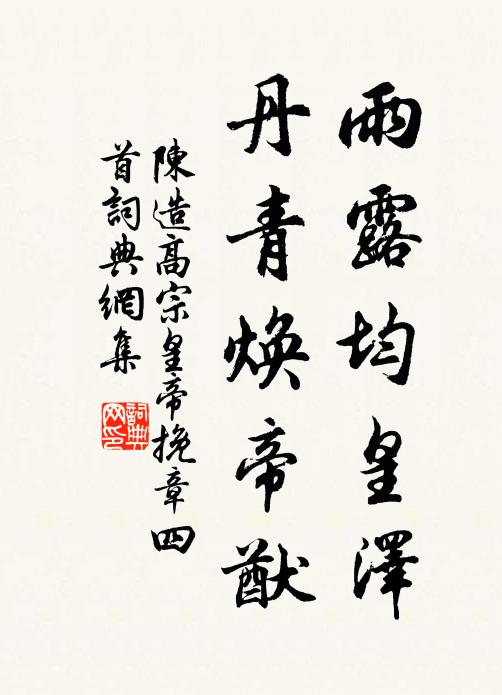 雨露均皇澤
丹青煥帝猷
陳造高宗皇帝挽章四
首詞典網集
詞典
网印